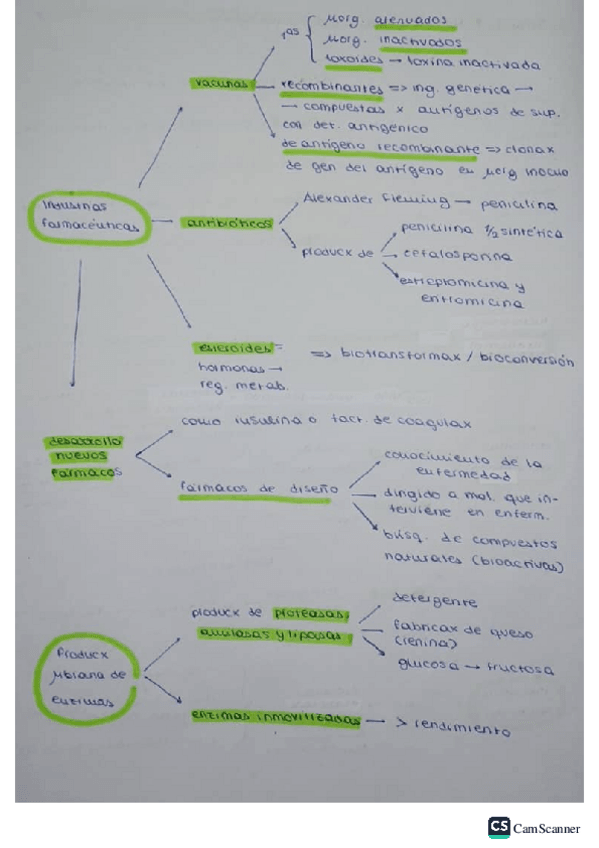 1as
μorg. atenuados
μorg. inactivados
toxoides → toxina inactivada
vacunas
recombinantes => ing. genética →
→ compuestas x antígenos de sup.
con det. antigénico
de antígeno recombinante => clonax
de gen del antígeno en μorg inocuo
Industrias
farmacéuticas
antibióticos
Alexander Fleming → penicilina
producx de
penicilina 1/2 sintética
cefalosporina
estreptomicina y
eritromicina
esteroides =
hormonas →
reg. metab.
=> biotransformax / bioconversión
como insulina o fact. de coagulax
desarrollo
nuevos
fármacos
fármacos de diseño
conocimiento de la
enfermedad
dirigido a mol. que in-
terviene en enferm.
búsq. de compuestos
naturales (bioactivos)
Producx
μbiana de
enzimas
producx de proteasas,
amilasas y lipasas
detergente
fabricax de queso
(renina)
glucosa → fructosa
enzimas inmovilizadas → > rendimiento
CS CamScanner